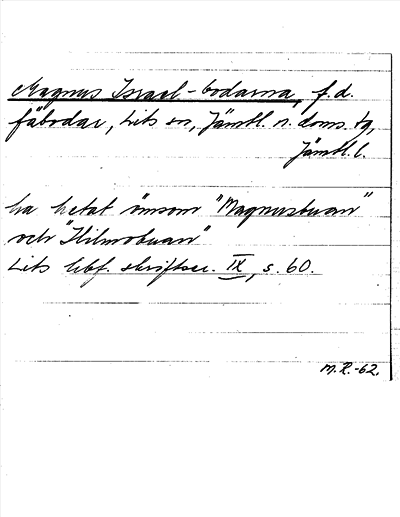 Magnus Israel-bodarna, f.d.
fäbodar, Lits sn, Jämtl. n. doms. tg,
Jämtl. l.
ha hetat ömsom "Magnusbuan"
och "Hilmobuan"
Lits hbf. skriftser. IX, s. 60.
M.R.-62.